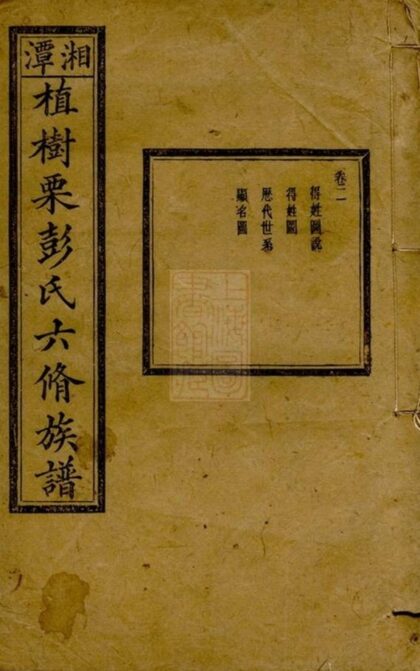 湘潭
植樹栗彭氏六脩族譜
卷二
得姓圖說
得姓圖
歷代世系
顯名圖